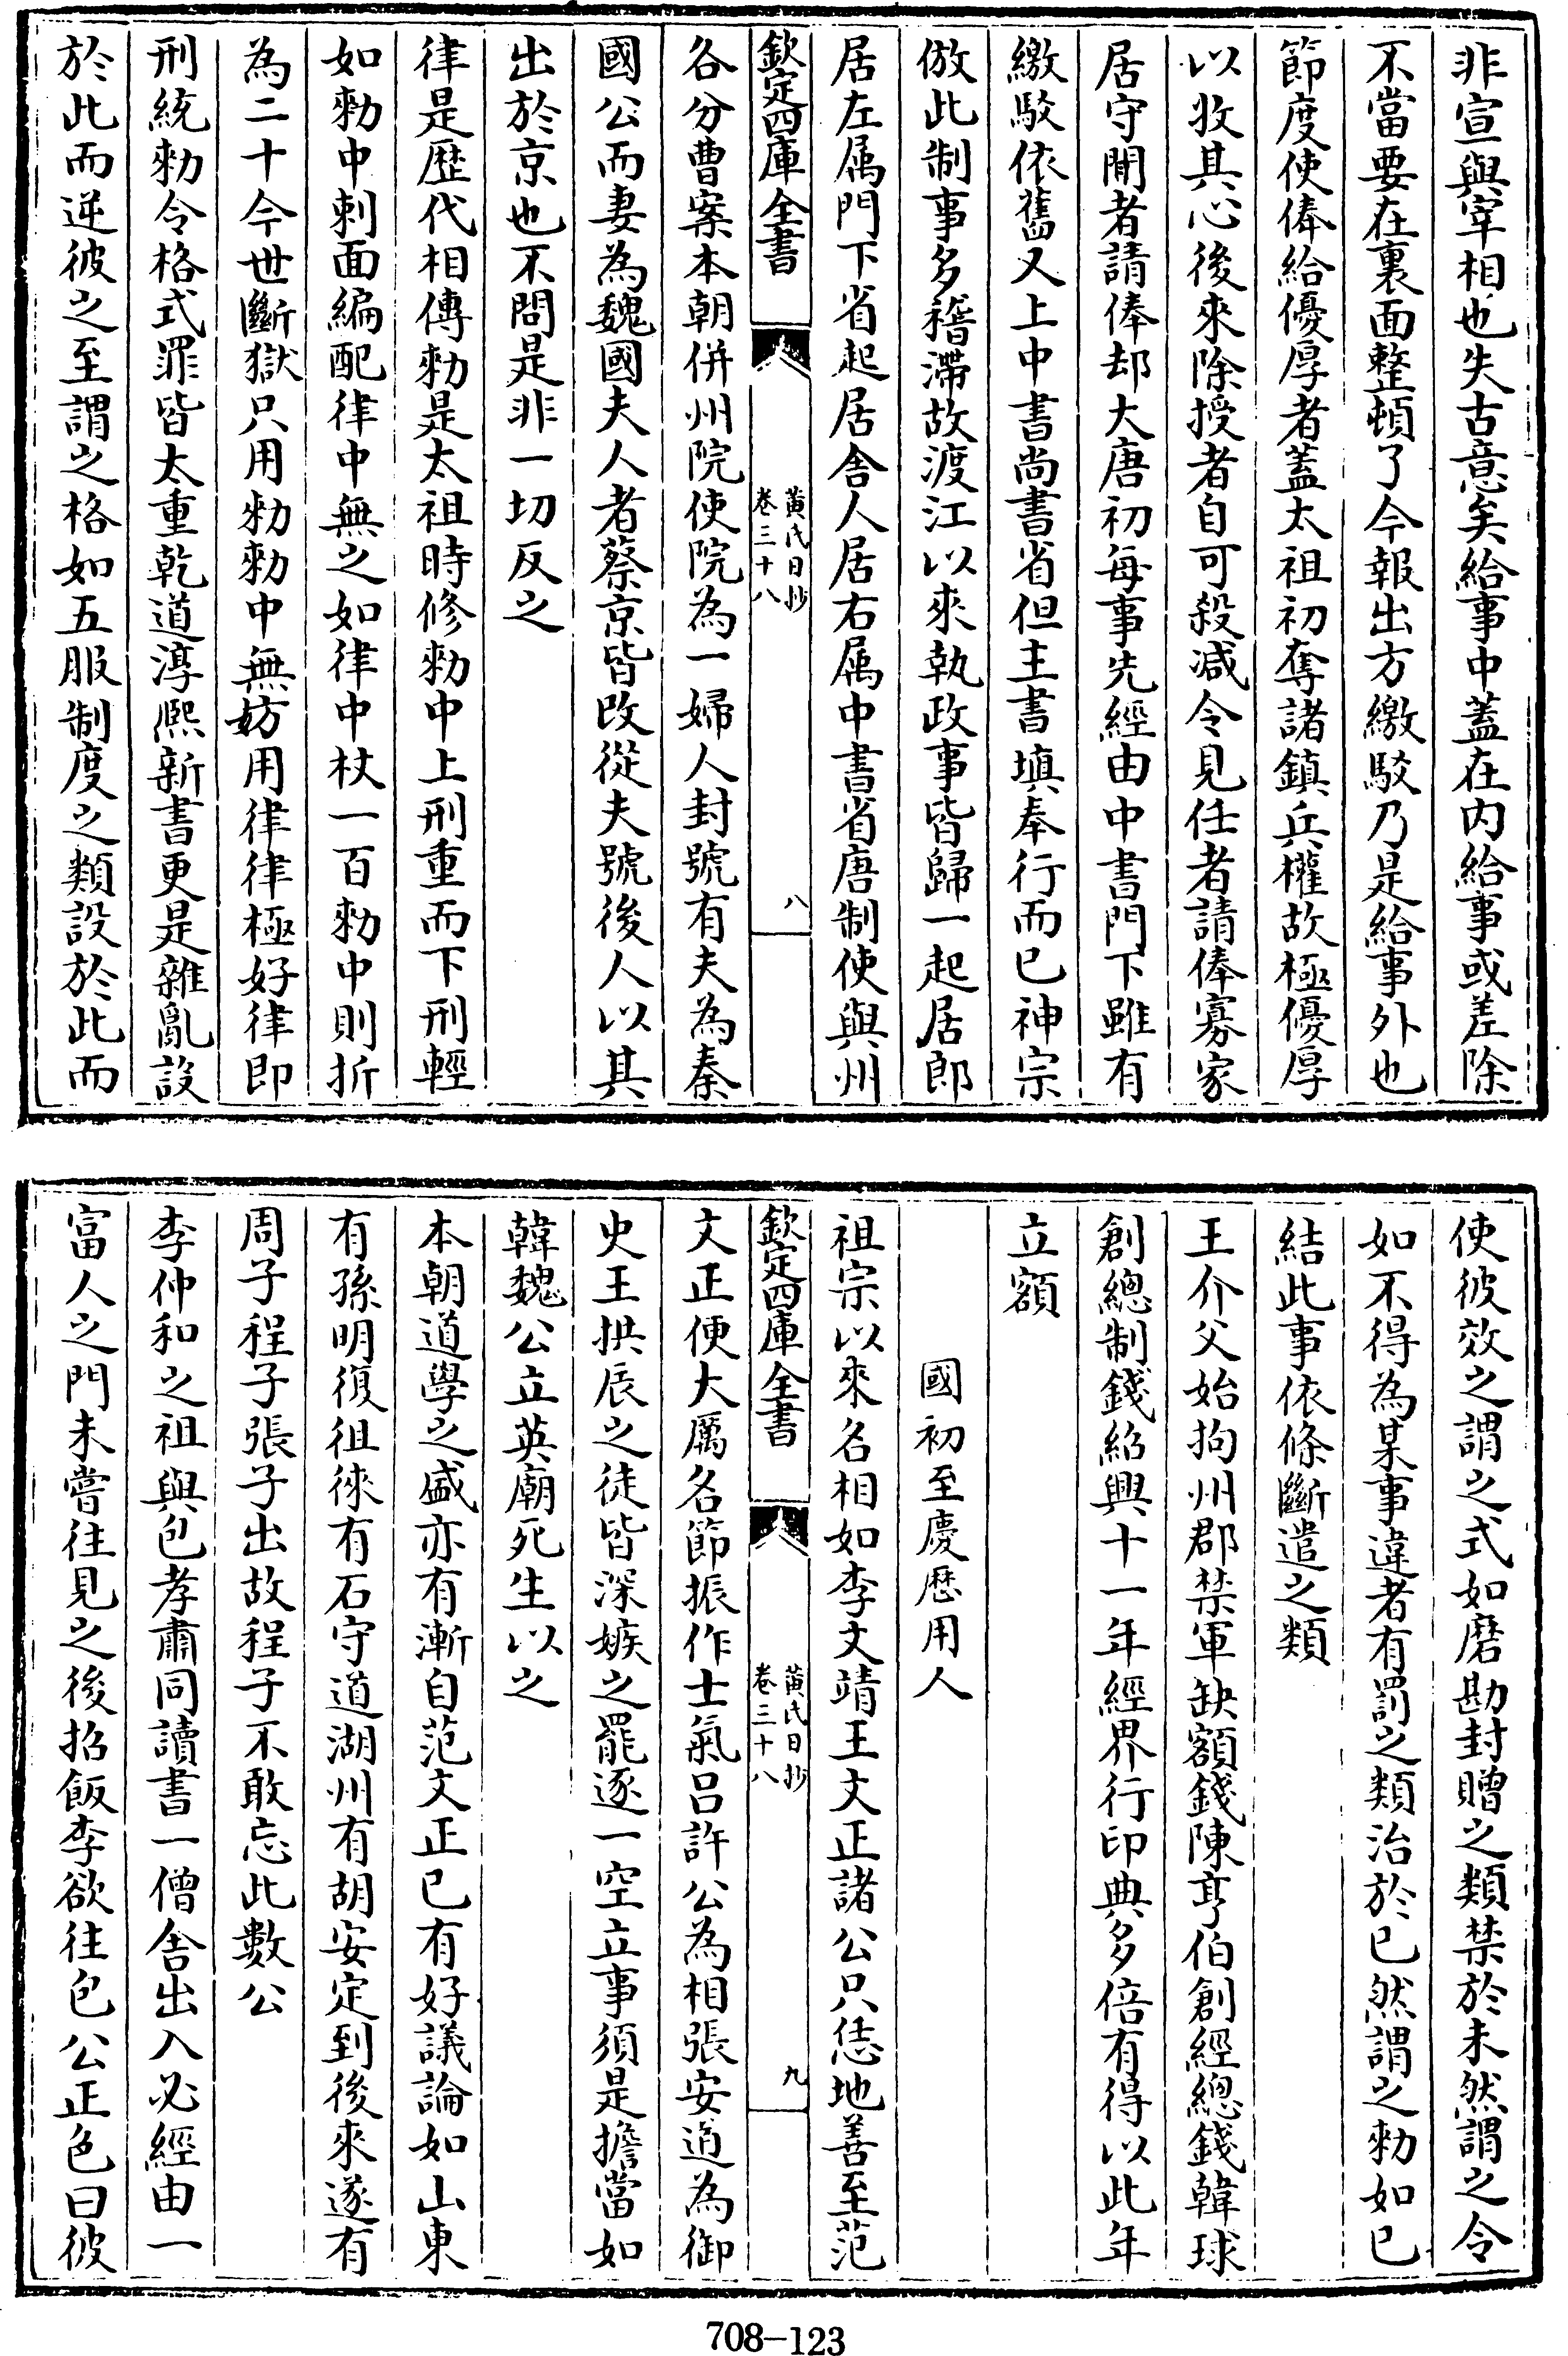 非宣與宰相也失古意矣給事中蓋在内給事或差除
不當要在裏面整頓了今報出方繳駁乃是給事外也
節度使俸給優厚者蓋太祖初奪諸鎮兵權故極優厚
以收其心後來除授者自可殺減令見任者請俸寡家
居守閒者請俸却大唐初每事先經由中書門下雖有
繳駁依舊又上中書尚書省但主書填奉行而已神宗
倣此制事多稽滯故渡江以來執政事皆歸一起居郎
居左属門下省起居舍人居右属中書省唐制使與州
欽定四庫全書
黄氏日抄
卷三十八
八
各分曹案本朝併州院使院為一婦人封號有夫為秦
國公而妻為魏國夫人者蔡京皆改從夫號後人以其
出於京也不問是非一切反之
律是歴代相傳勅是太祖時修勅中上刑重而下刑輕
如勅中刺面編配律中無之如律中杖一百勅中則折
為二十今世斷獄只用勅勅中無妨用律律極好律即
刑統勅令格式罪皆太重乾道淳熙新書更是雜亂設
於此而逆彼之至謂之格如五服制度之類設於此而
使彼效之謂之式如磨勘封贈之類禁於未然謂之令
如不得為某事違者有罰之類治於已然謂之勅如已
結此事依條斷遣之類
王介父始拘州郡禁軍缺額錢陳亨伯創經總錢韓球
創總制錢紹興十一年經界行印典多倍有得以此年
立額
國初至慶歴用人
祖宗以來名相如李文靖王文正諸公只恁地善至范
欽定四庫全書
黄氏日抄
卷三十八
九
文正便大厲名節振作士氣吕許公為相張安道為御
史王拱辰之徒皆深嫉之罷逐一空立事須是擔當如
韓魏公立英廟死生以之
本朝道學之盛亦有漸自范文正已有好議論如山東
有孫明復徂徠有石守道湖州有胡安定到後來遂有
周子程子張子出故程子不敢忘此數公
李仲和之祖與包孝肅同讀書一僧舍出入必經由一
富人之門未嘗往見之後招飯李欲往包公正色曰彼
708-123